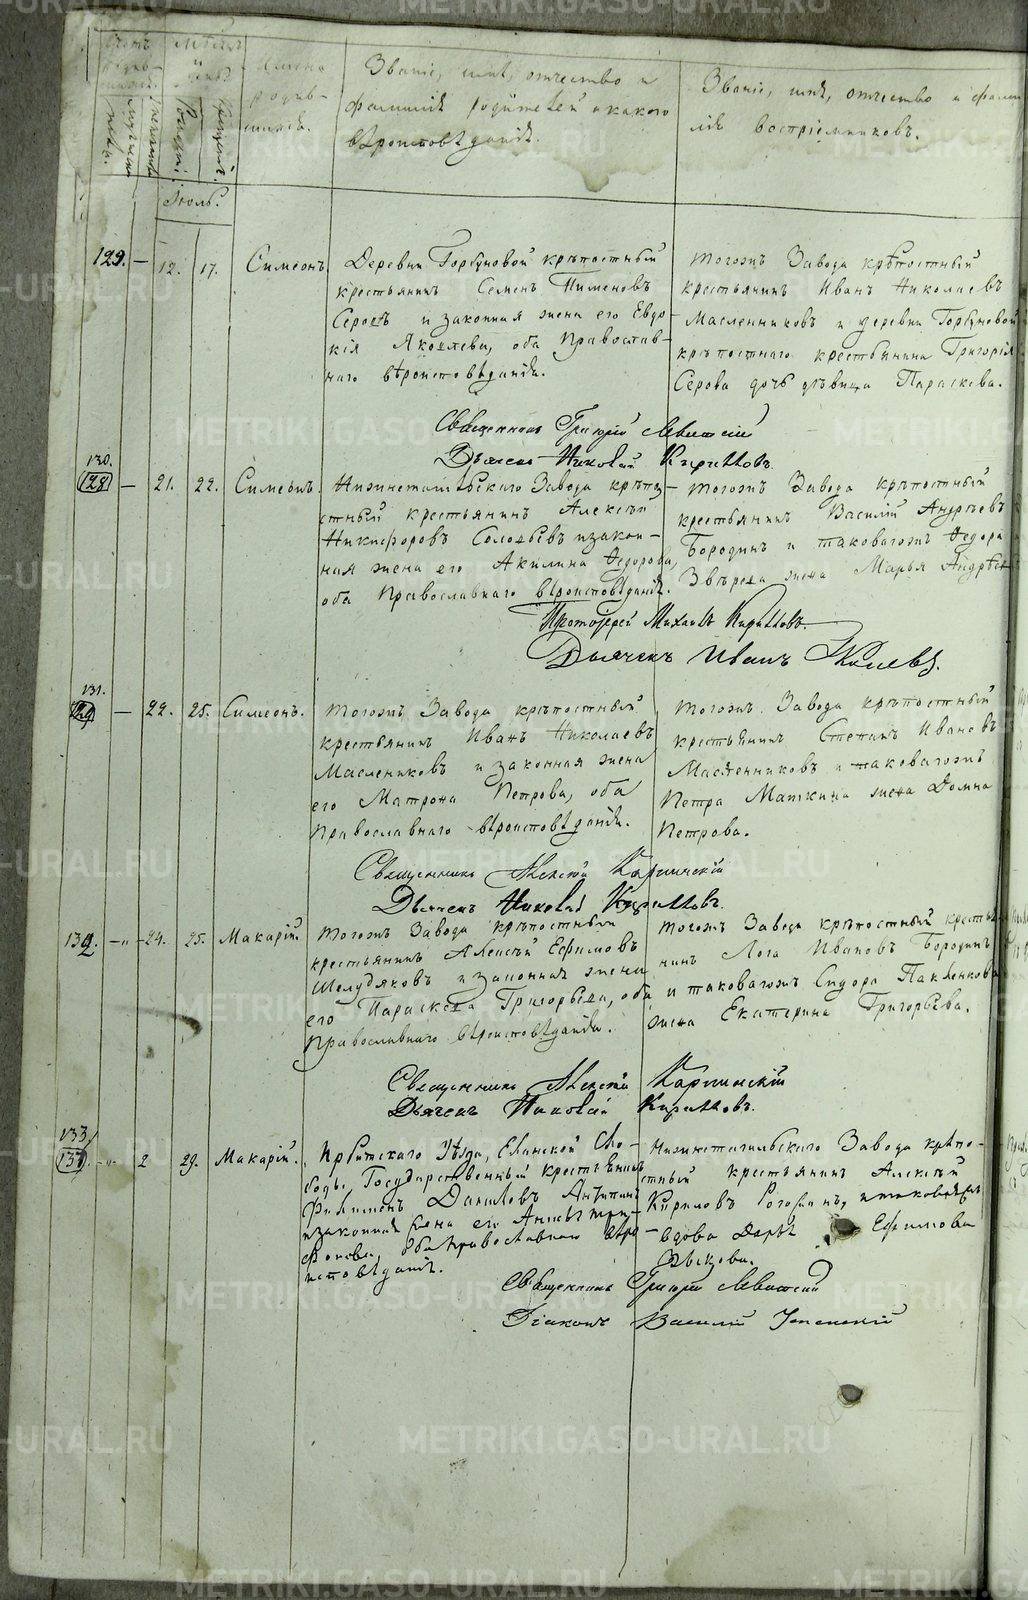 Счетъ родив-
шихся.
Мѣсяцъ
и день
Имена
родив-
шихся.
Званіе, имя, отчество и
фамилія родителей и какого
вѣроисповѣданія.
Званіе, имя, отчество и фами
лія воспріемниковъ.
мужеска
женска
Рожденія.
Крещенія.
Іюль.
129. — 12. 17. Симеонъ.
Деревни Горбуновой крѣпостный
крестьянинъ Семенъ Пименовъ
Серовъ и законная жена его Евдо-
кія Яковлева, оба Православ-
наго вѣроисповѣданія.
тогожъ Завода крѣпостный
крестьянинъ Иванъ Николаевъ
Масленниковъ и деревни Горбуновой
крѣпостнаго крестьянина Григорія
Серова дочь дѣвица Параскева.
Священникъ Григорій Левитскій
Дьячекъ Николай Кирилловъ.
130.
128 — 21. 22. Симеонъ.
Нижнетагильскаго Завода крѣпо-
стный крестьянинъ Алексѣй
Никифоровъ Солодьевъ и закон-
ная жена его Акилина Ѳедорова,
оба Православнаго вѣроисповѣданія.
тогожъ Завода крѣпостный
крестьянинъ Василій Андреевъ
Бородинъ и таковагожъ Ѳедора
Звѣрева жена Марья Андрѣе
Протоіерей Михаилъ Кирилловъ.
Дьячекъ Иванъ Яковлевъ.
131.
129 — 22. 25. Симеонъ.
тогожъ Завода крѣпостный
крестьянинъ Иванъ Николаевъ
Маслениковъ и законная жена
его Матрона Петрова, оба
Православнаго вѣроисповѣданія.
тогожъ Завода крѣпостный
крестьянинъ Степанъ Ивановъ
Масленниковъ и таковагожъ
Петра Маткина жена Домна
Петрова.
Священникъ Алексѣй Карпинскій
Дьячекъ Николай Кирилловъ.
132. — 24. 25. Макарій.
тогожъ Завода крѣпостный
крестьянинъ Алексѣй Ефимовъ
Шелудяковъ и законная жена
его Параскева Григорьева, оба
Православнаго вѣроисповѣданія.
тогожъ Завода крѣпостный крестья
нинъ Лога Ивановъ Бородинъ
и таковагожъ Сидора Пакленкова
жена Екатерина Григорьева.
Священникъ Алексѣй Карпинскій
Дьячекъ Николай Кирилловъ.
133
131. — 2 29. Макарій.
Ирбитскаго Уѣзда, Еланской Сло-
боды, Государственный крестьянинъ
Филимонъ Даниловъ Антипинъ
и законная жена его Анна Три-
фонова, оба Православнаго вѣро-
исповѣданія.
Нижнетагильскаго Завода крѣпо-
стный крестьянинъ Алексѣй
Кириловъ Рогожинъ, и таковагожъ
вдова Дарья Ефимова
Зыкова.
Священникъ Григорій Левитскій
Діаконъ Василій Успенскій